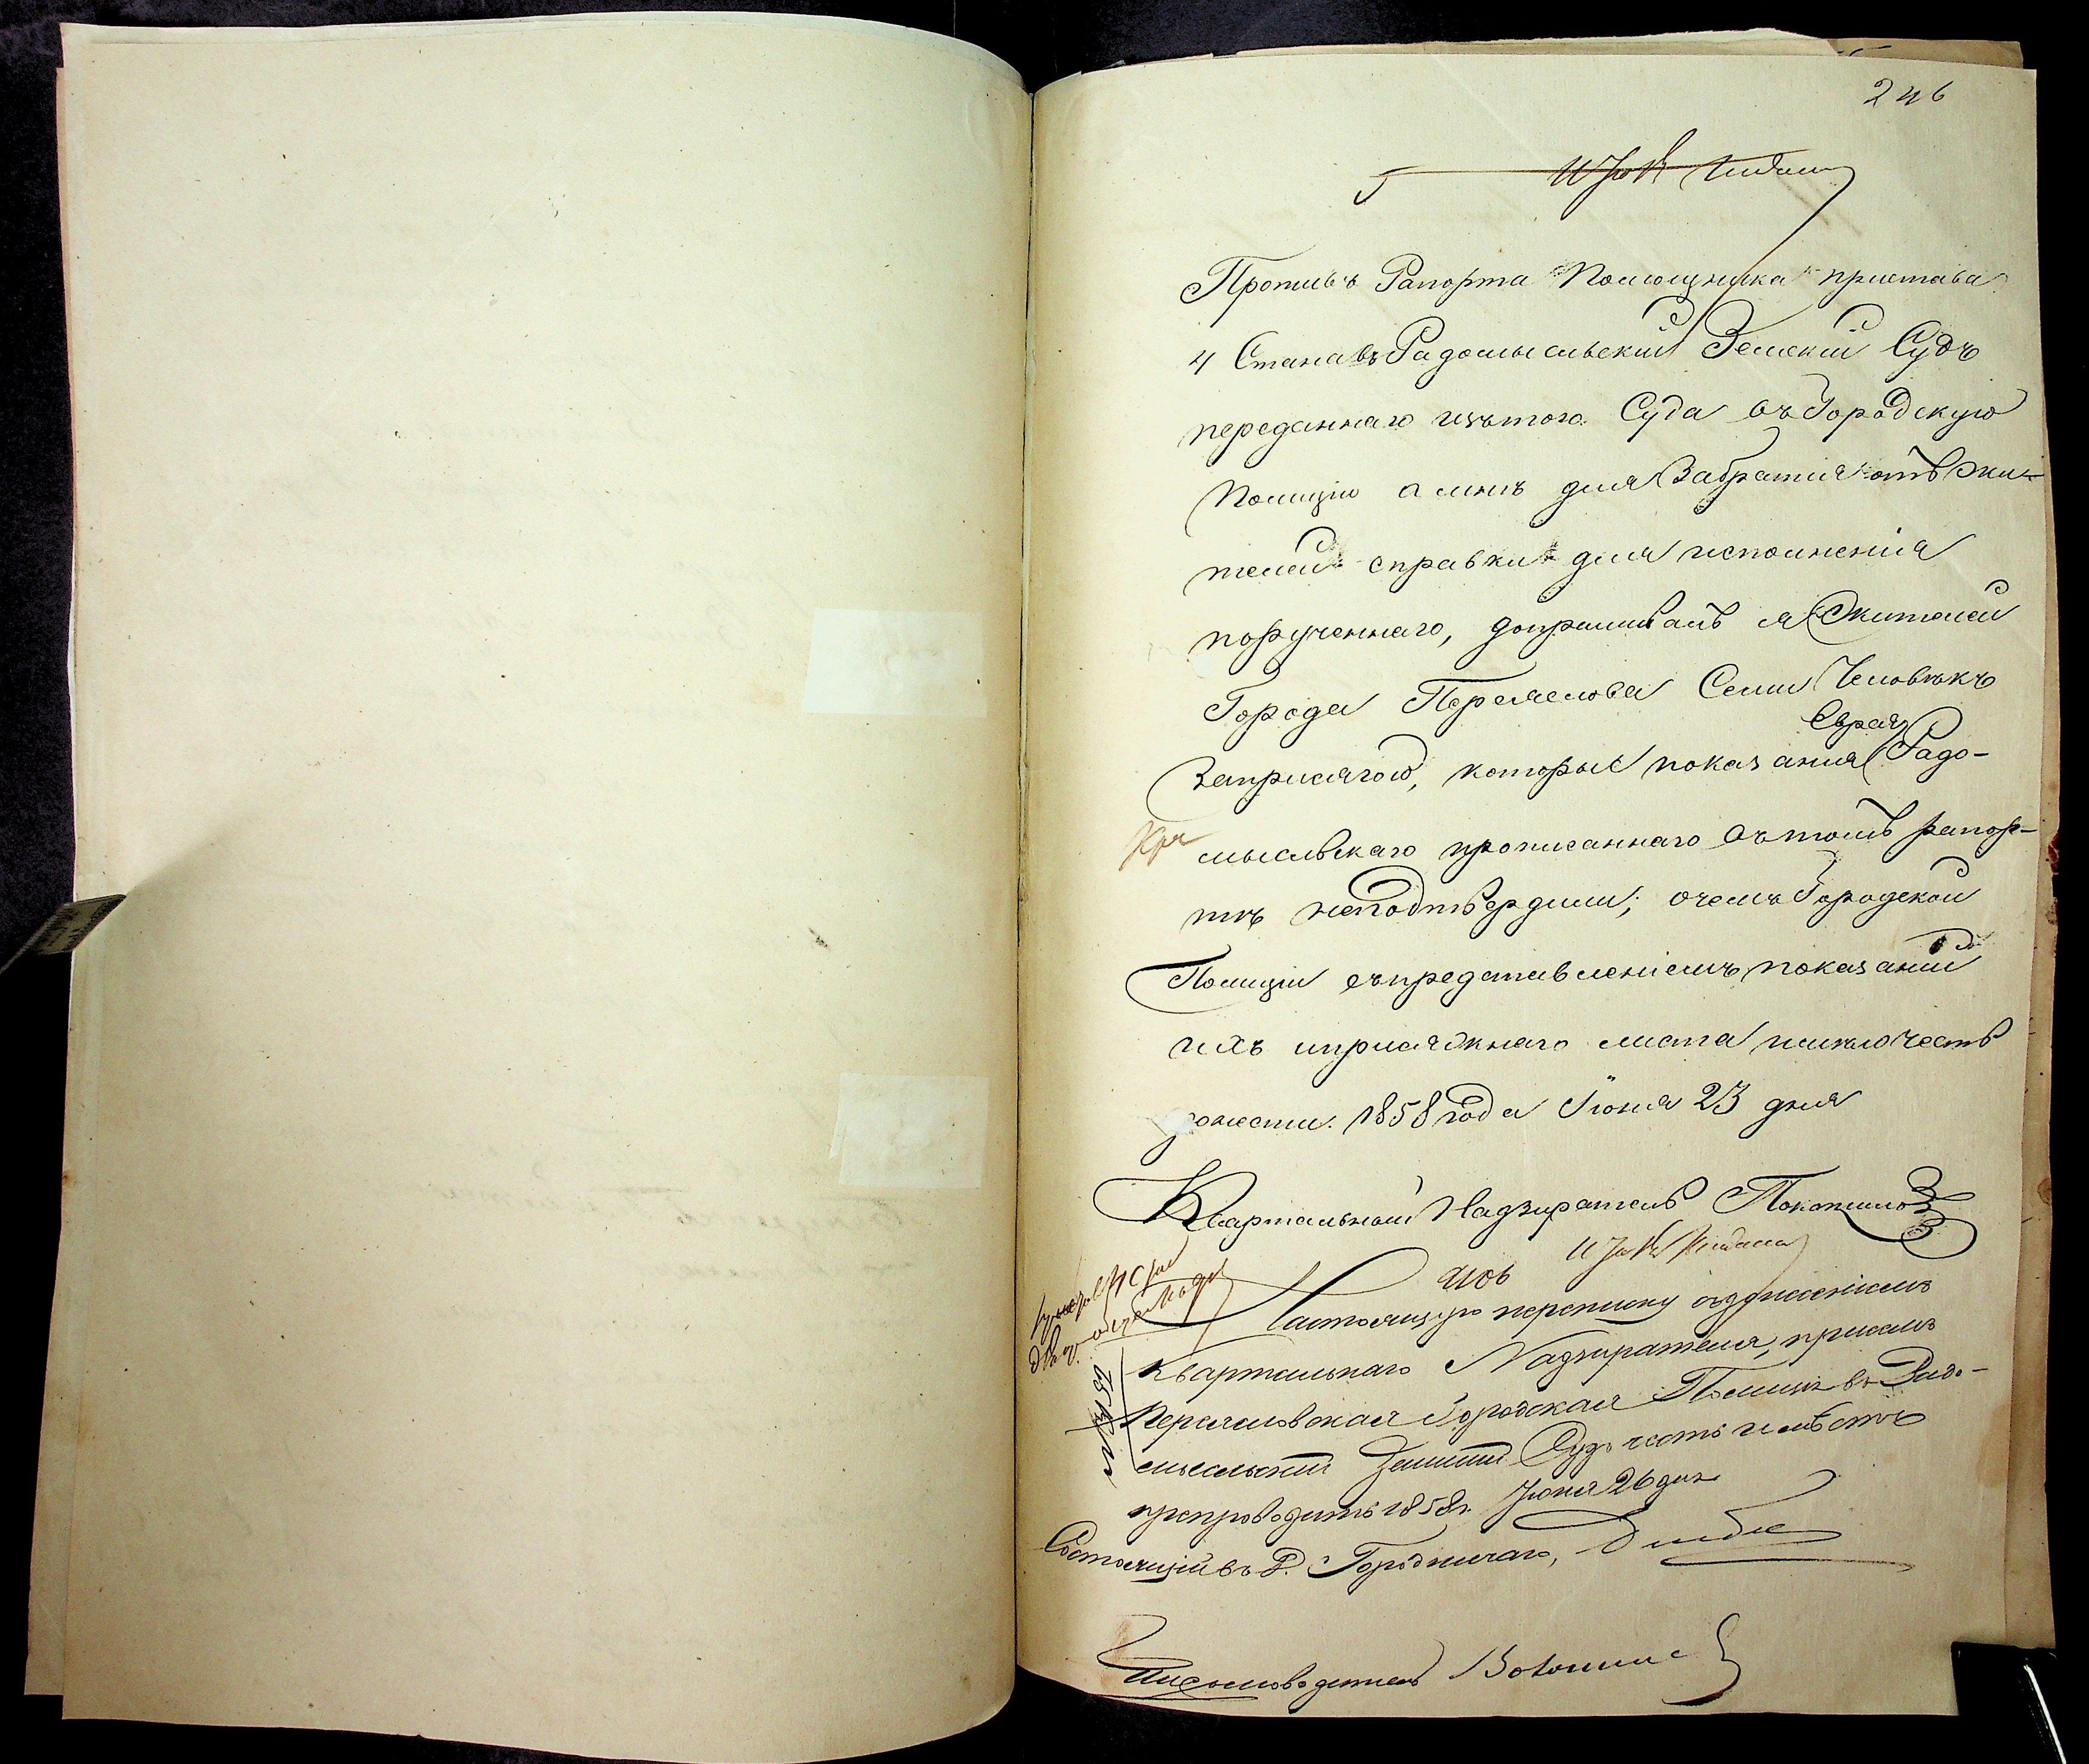 246
Противъ Рапорта Помощника пристава
4 Стана въ Радомысльскій Земскій Судъ
переданнаго изъ того Суда въ Городскую
Полицію а мнѣ для Забратія отъ жи-
телей справки для исполненія
порученнаго, допрашивалъ я Жителей
Города Переяслова Семи Человѣкъ
Еврея
заприсягою, которые показанія Радо-
мысльскаго прописаннаго въ томъ рапор-
тѣ неподтвердили; очемъ Городской
Полиціи съ представленіемъ показаній
ихъ и присяжнаго листа имѣю честь
донести. 1858 года Іюня 23 дня
Квартальный Надзиратель
Настоящую переписку съ донесеніемъ
Квартальнаго Надзирателя,
Переяславская Городская Полиція въ Радо-
мысльскій Земскій Судъ честь имѣетъ
препроводить 1858 г. Іюня 26 дня
Состоящій въ д. Городничаго,
Письмоводитель